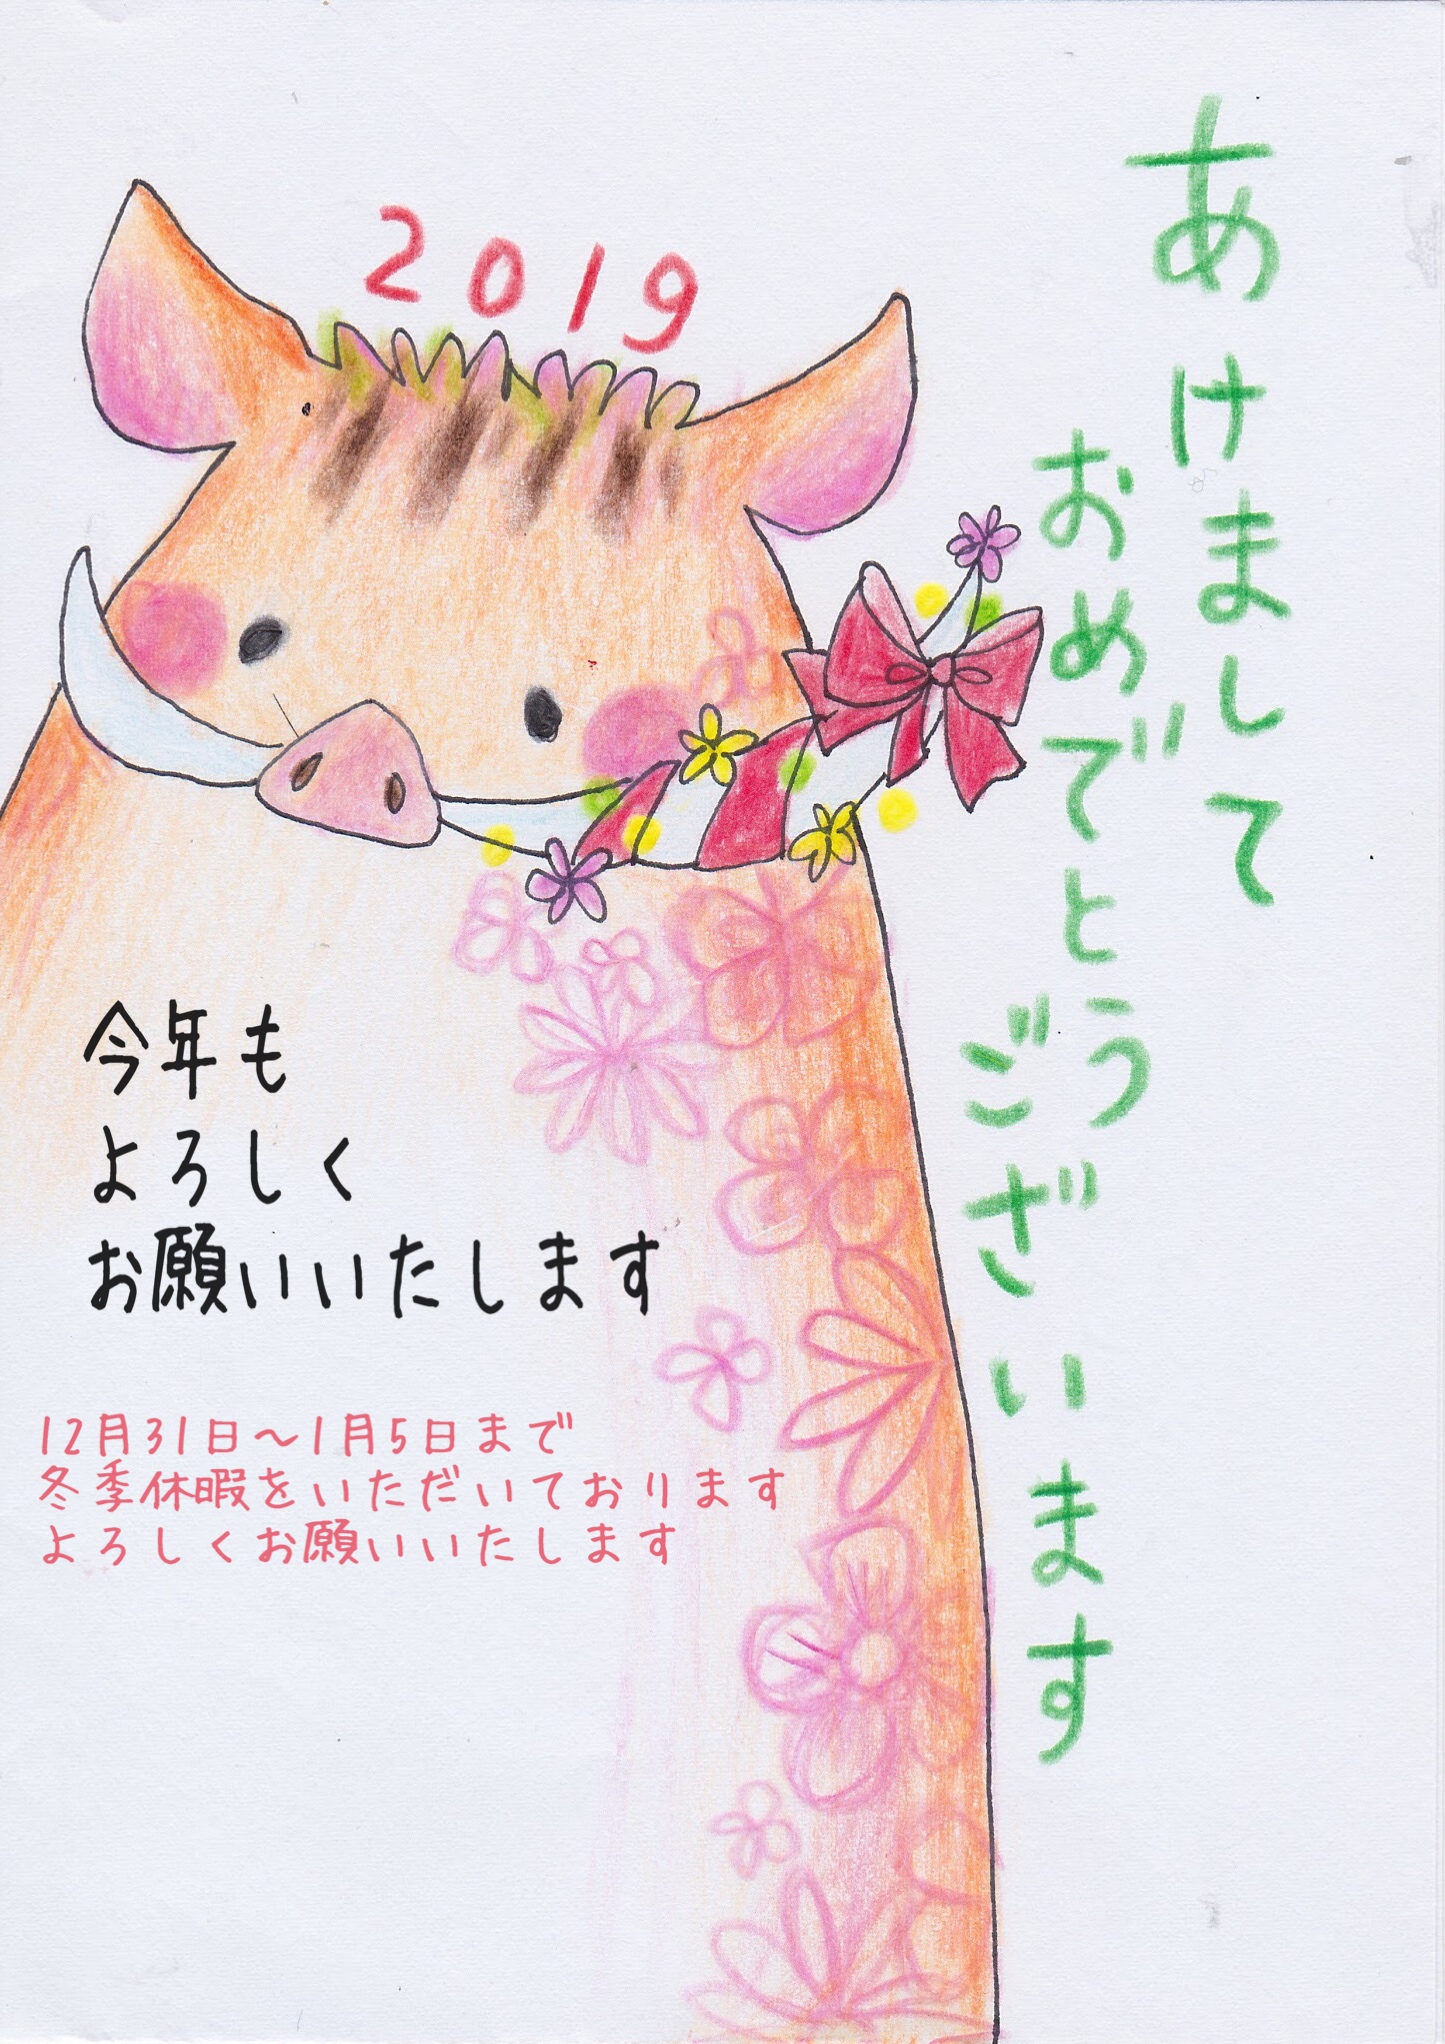 2019
あけまして
おめでとう
ございます
今年も
よろしく
お願いいたします
12月31日～1月5日まで
冬季休暇をいただいております
よろしくお願いいたします